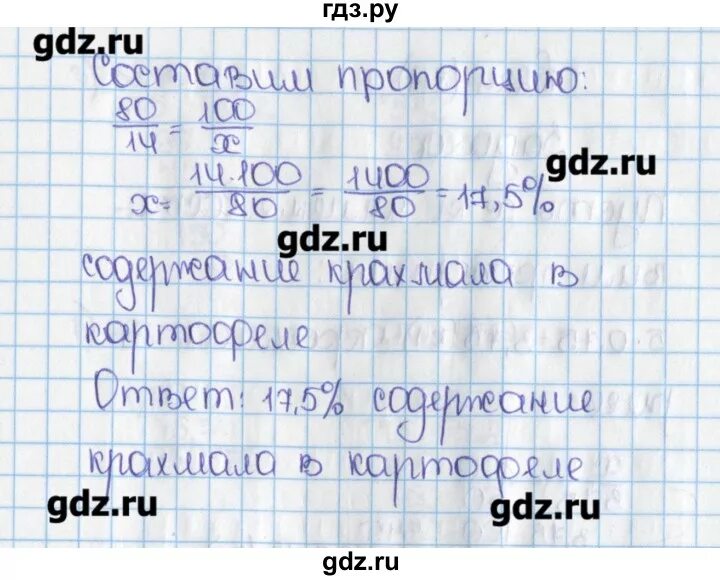 гдз.ру
gdz.ru
Составим пропорцию:
80/14 = 100/x
gdz.ru
x = 14·100/80 = 1400/80 = 17,5%
gdz.ru
содержание крахмала в
картофеле
Ответ: 17,5% содержание
крахмала в картофеле
gdz.ru
gdz.ru
gdz.ru